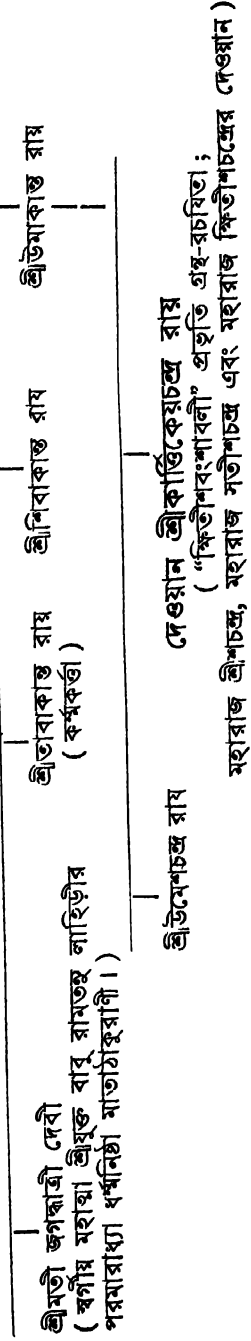 শ্রীমতী জগদ্ধাত্রী দেবী
( স্বর্গীয় মহাত্মা শ্রীযুক্ত বাবু রামতনু লাহিড়ীর
পরমারাধ্যা ধর্ম্মনিষ্ঠা মাতাঠাকুরাণী। )
শ্রীতাবাকান্ত রায়
( কর্ম্মকর্ত্তা )
শ্রীশিবাকান্ত রায
শ্রীউমাকান্ত রায়
শ্রীউমেশচন্দ্র রায
দেওয়ান শ্রীকার্ত্তিকেয়চন্দ্র রায়
( “ক্ষিতীশবংশাবলী” প্রভৃতি গ্রন্থ-রচযিতা ;
মহারাজ শ্রীশচন্দ্র, মহারাজ সতীশচন্দ্র এবং মহারাজ ক্ষিতীশচন্দ্রের দেওয়ান )